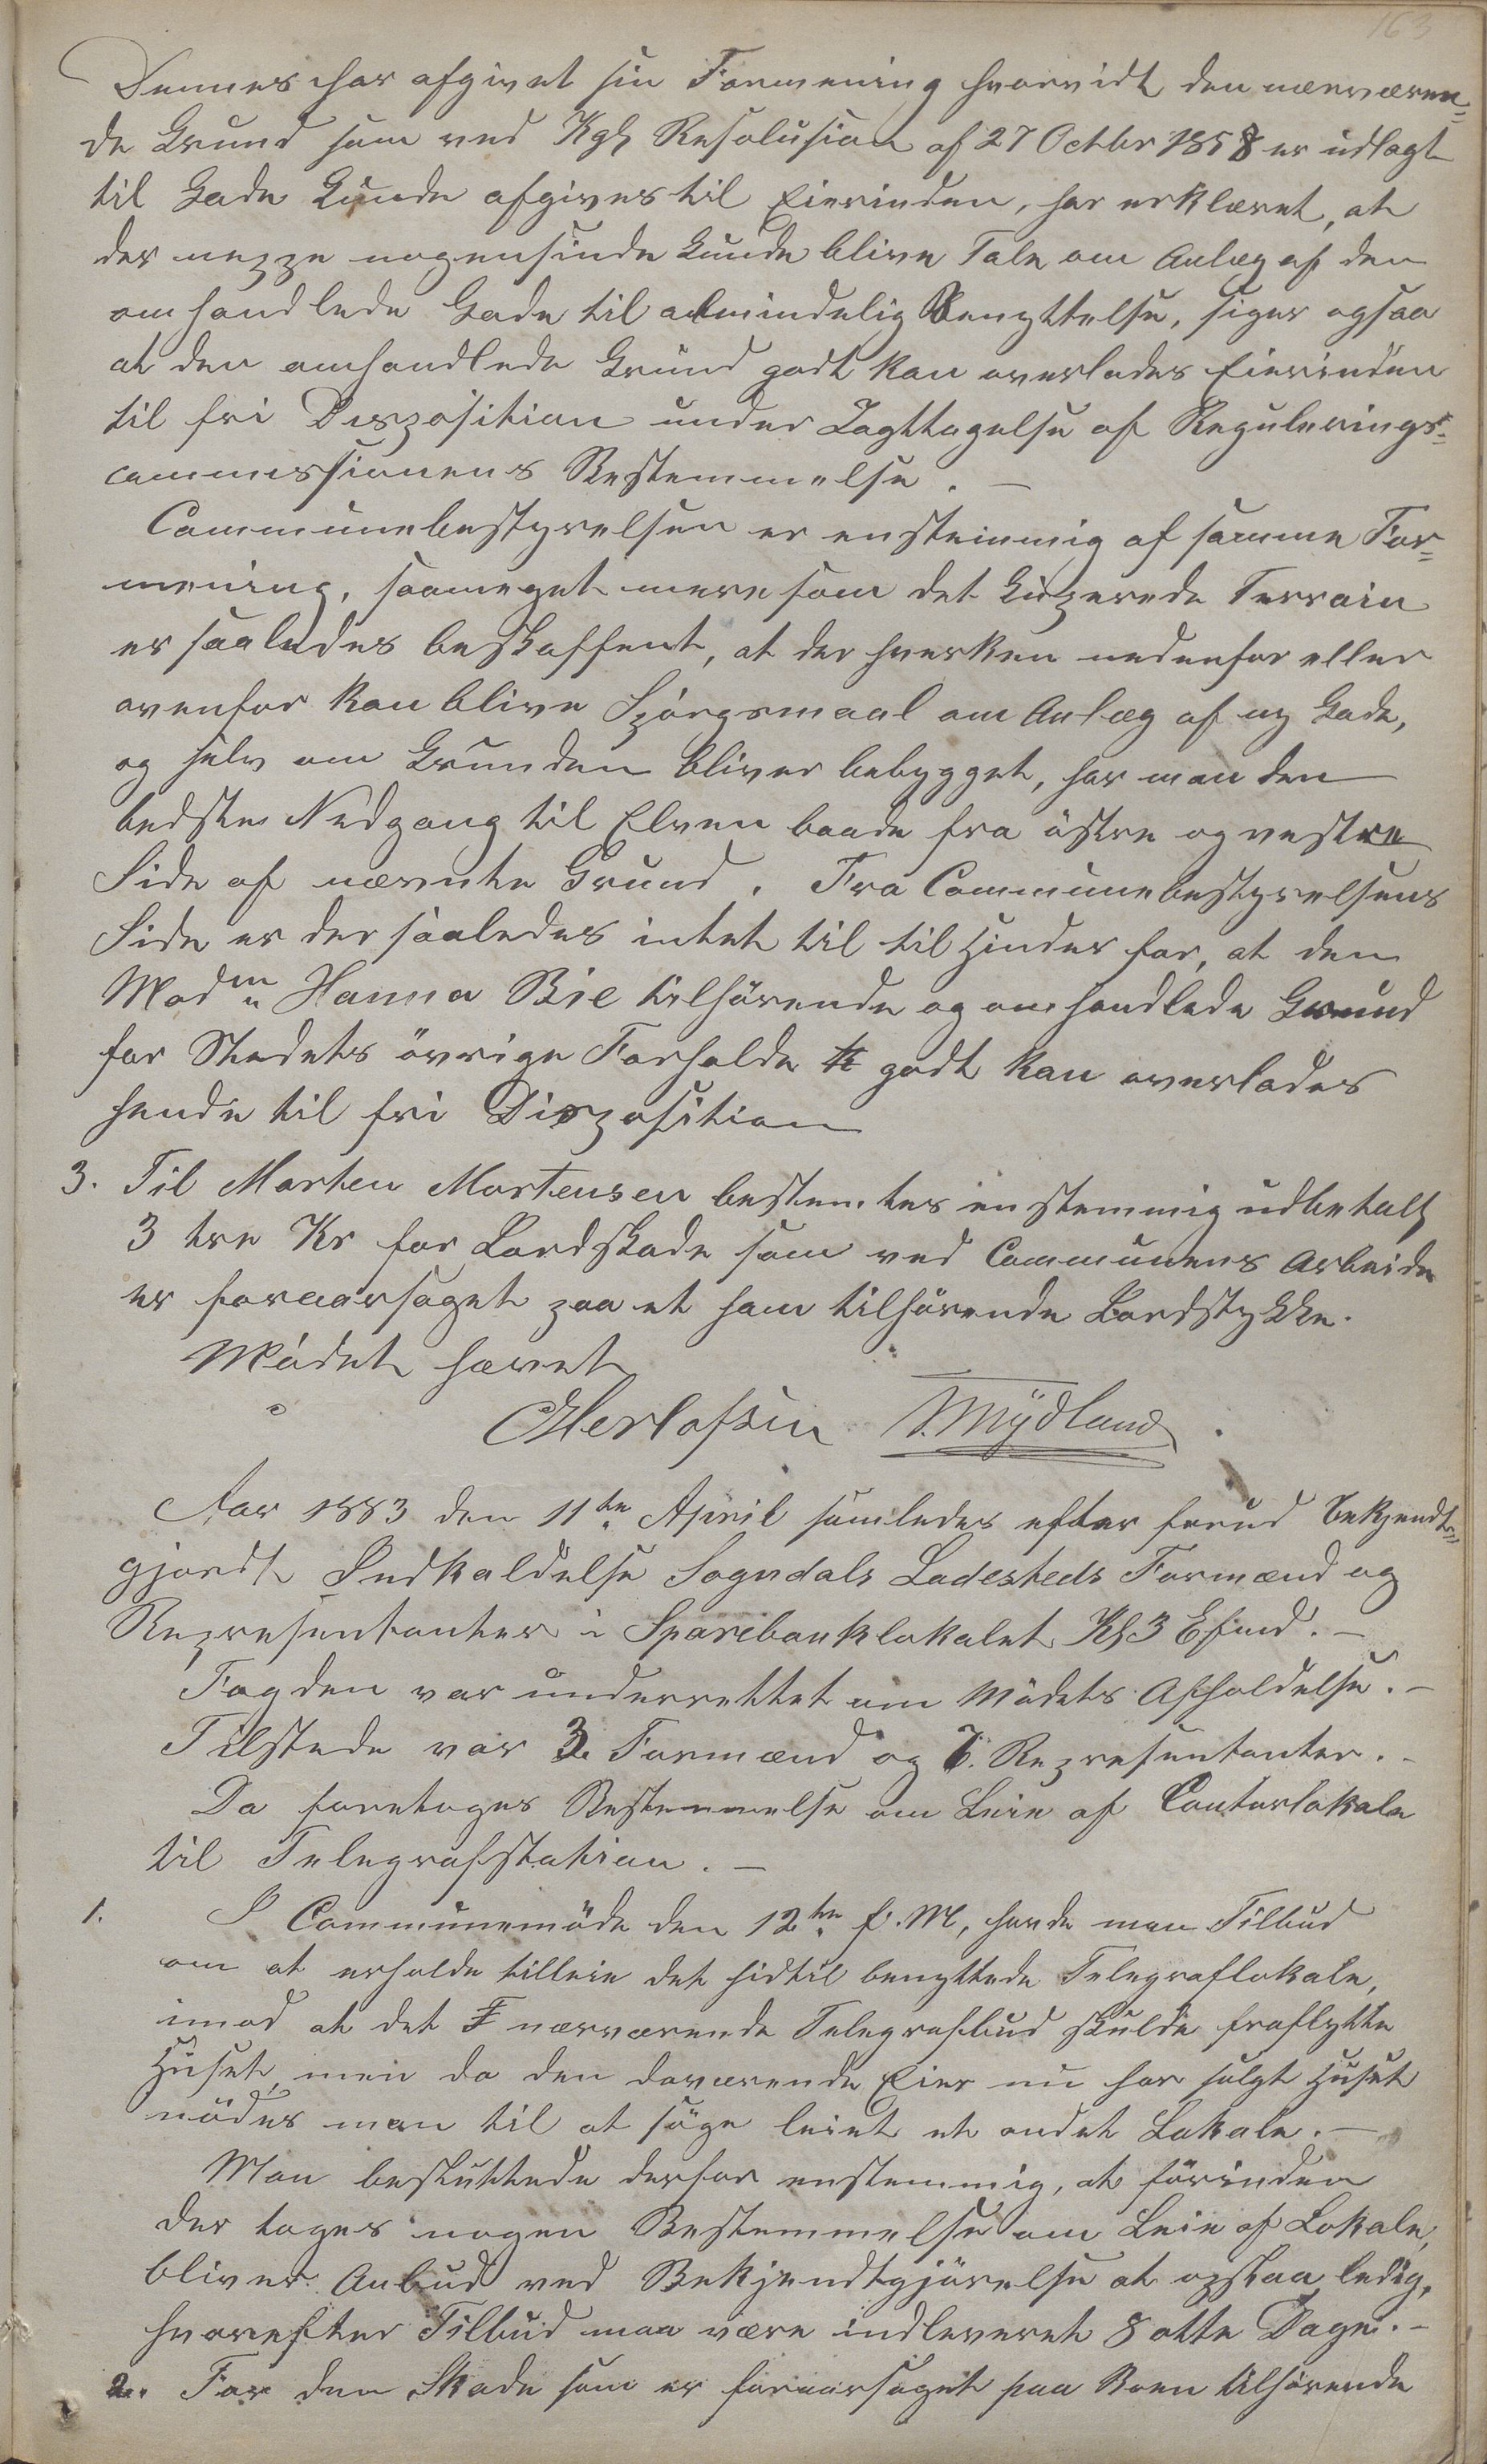 163
Dennes har afgivet sin Formening hvorvidt den nærværen=
de Grund som ved Kgl Resolusion af 27 Octbr 1858 er udlagt
til Gade kunde afgives til Eierinden, har erklæret, at
der neppe nogensinde kunde blive Tale om Anlæg af den
omhandlede Gade til almindelig Benyttelse, siger ogsaa
at den omhandlede Grund godt kan overlades Eierinden
til fri Disposition under Iagttagelse af Regulerings=
commissionens Bestemmelse. —
Communebestyrelsen er enstemmig af samme For=
mening, saameget mere som det kuperede Terrain
er saaledes beskaffent, at der hverken nedenfor eller
ovenfor kan blive Spörgsmaal om Anlæg af ny Gade,
og selv om Grunden bliver bebygget, har man den
bedste Nedgang til Elven baade fra östre og vestre
Side af nævnte Grund. Fra Communebestyrelsens
Side er der saaledes intet til til Hinder for, at den
Madm Hanna Bie tilhörende og omhandlede Grund
for Stedets övrige Forholde godt kan overlades
hende til fri Disposition
3. Til Morten Mortensen bestemtes enstemmig udbetalt
3 tre Kr for Jordskade som ved Communens Arbeide
er foraarsaget paa et ham tilhörende Jordstykke.
Mödet hævet
Herlofsen Mydland
Aar 1883 den 11te April samledes efter forud bekjendt=
gjordt Indkaldelse Sogndals Ladesteds Formænd og
Representanter i Sparebanklokalet Kl 3 Efmd. —
Fogden var underrettet om Mödets Afholdelse. —
Tilstede var 3. Formænd og 7. Representanter. —
Da foretoges Bestemmelse om Leie af Contorlokale
til Telegrafstation. —
1. I Communemöde den 12te f. M, havde man Tilbud
om at erholde tilleie det hidtil benyttede Telegraflokale,
imod at det nærværende Telegrafbud skulde fraflytte
Huset, men da den daværende Eier nu har solgt Huset
nödes man til at söge leiet et andet Lokale. —
Man besluttede derfor enstemmig, at förinden
der toges nogen Bestemmelse om Leie af Lokale,
bliver Anbud ved Bekjendtgjörelse at opslaa ledig,
hvorefter Tilbud maa være indleveret 8 otte Dage. —
2. For den Skade som er foraarsaget paa Roen tilhörende